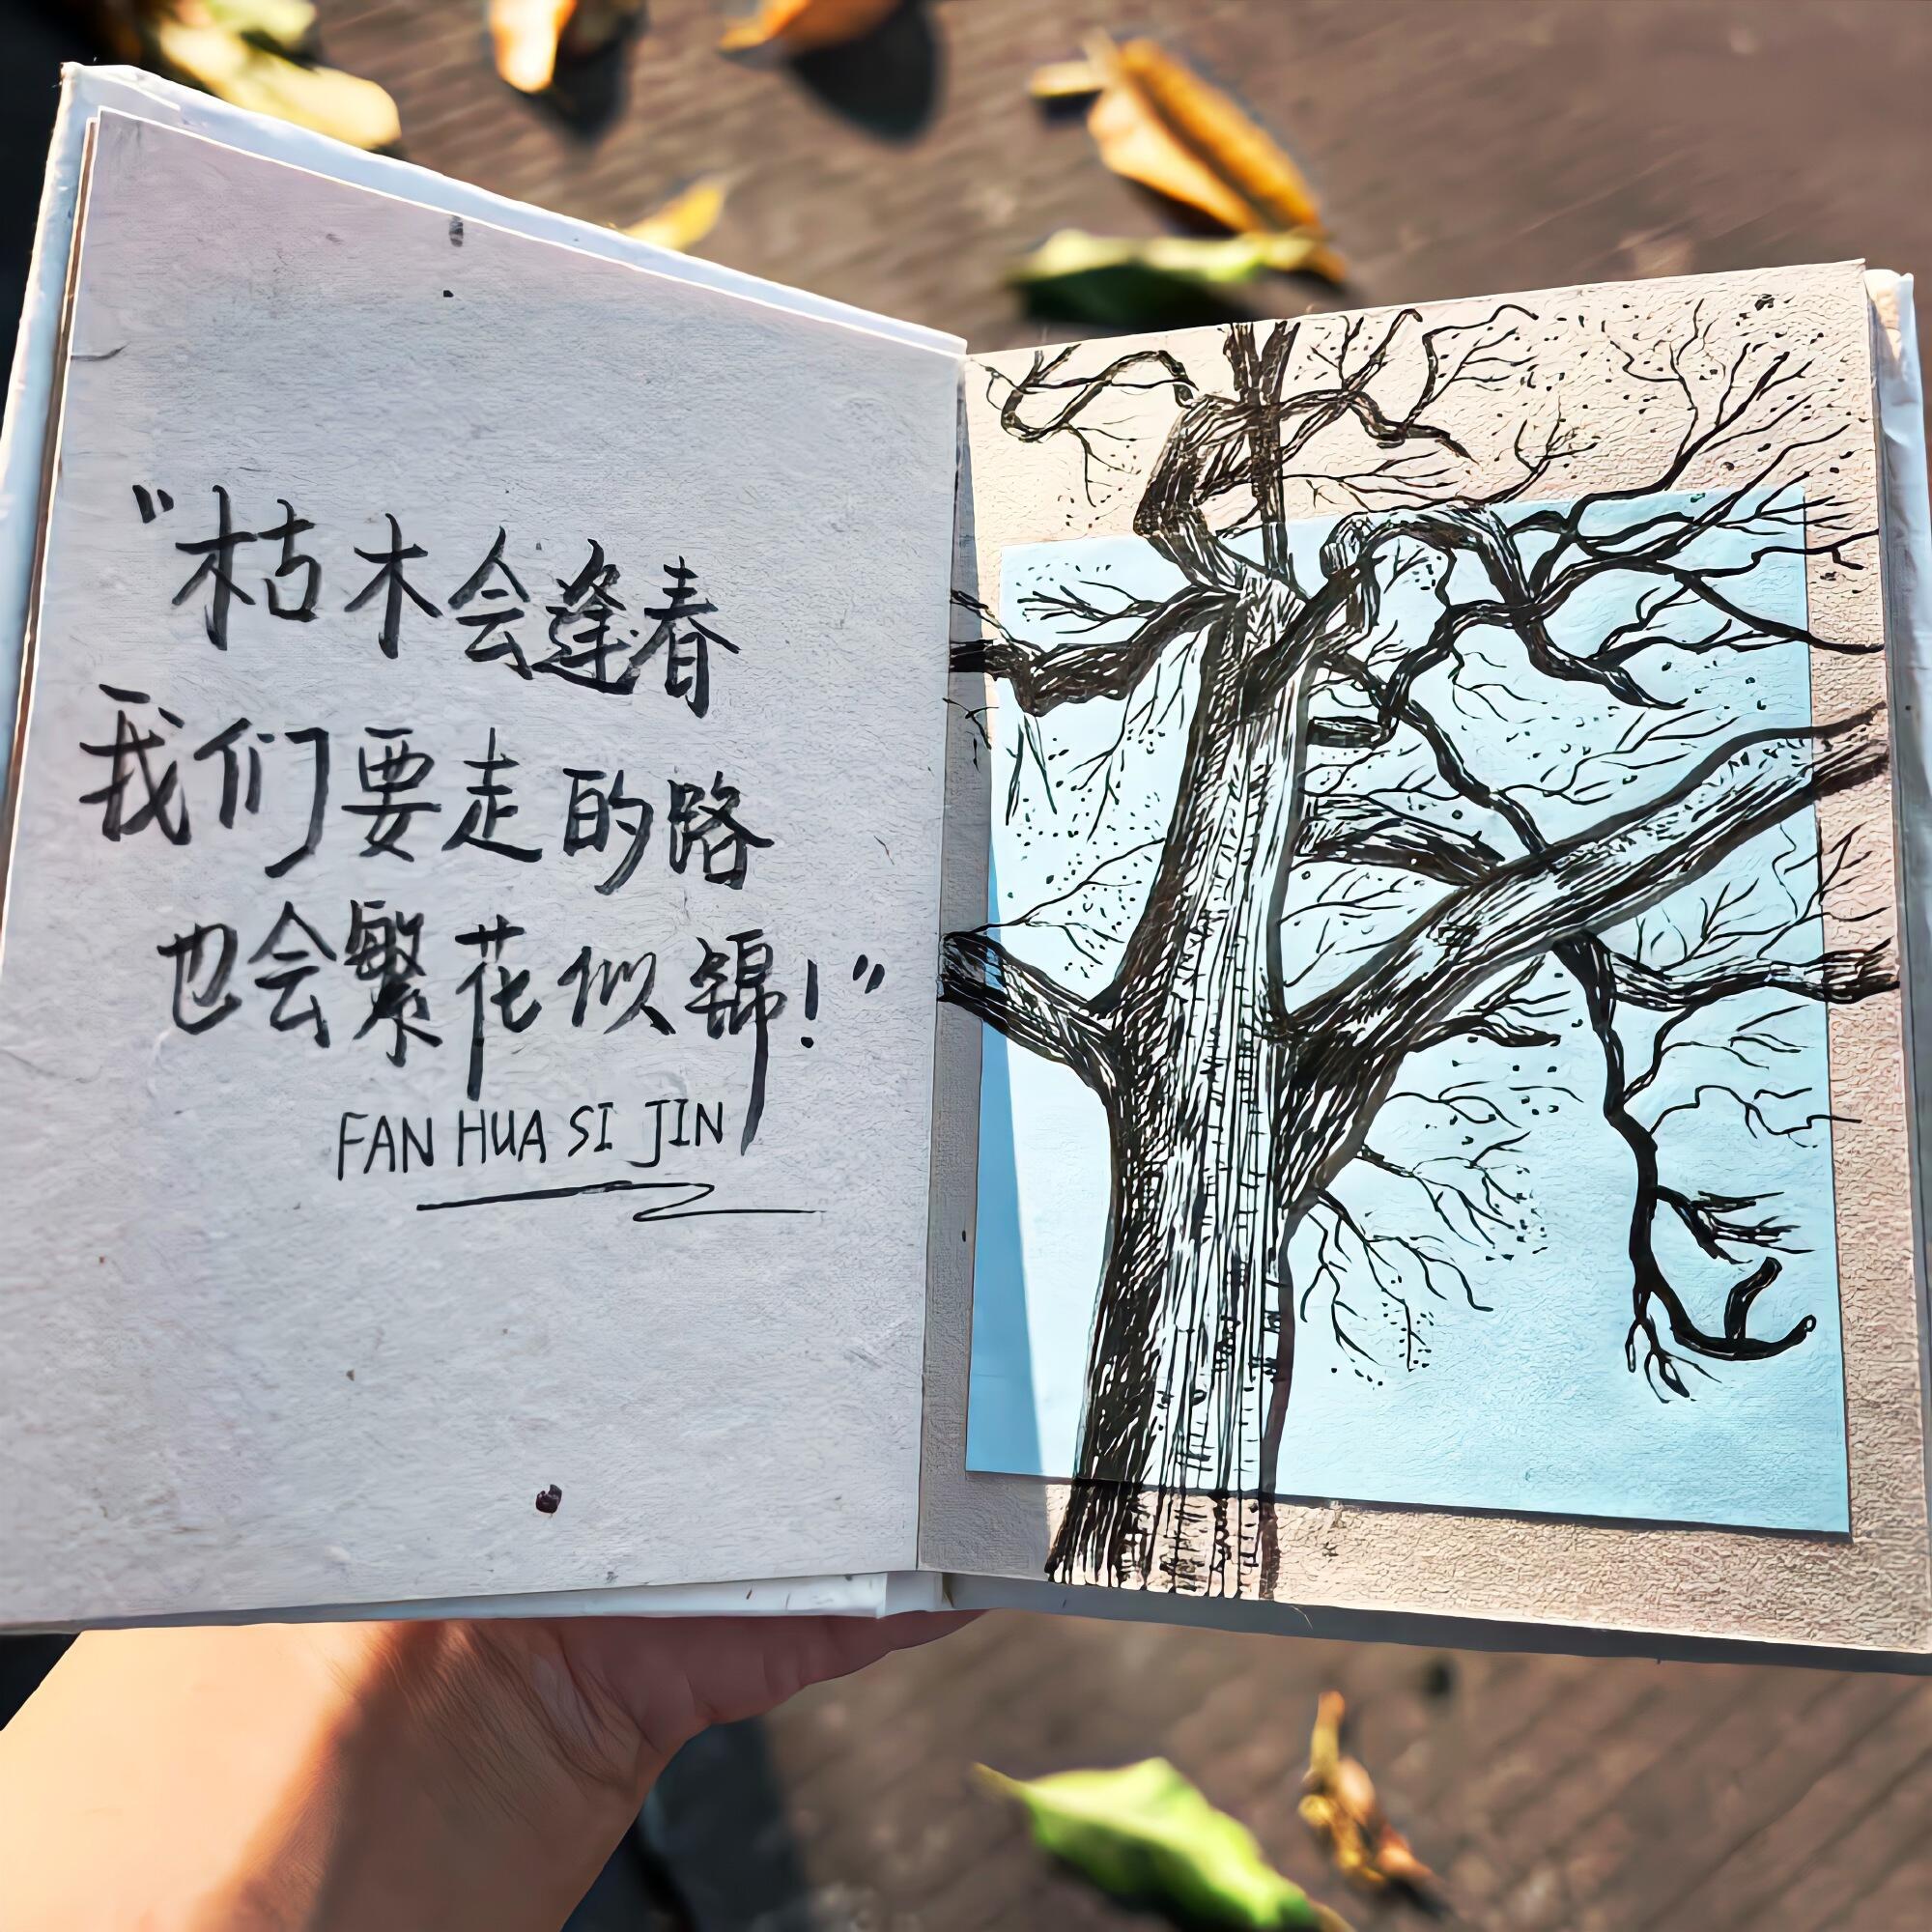 "枯木会逢春
我们要走的路
也会繁花似锦!"
FAN HUA SI JIN